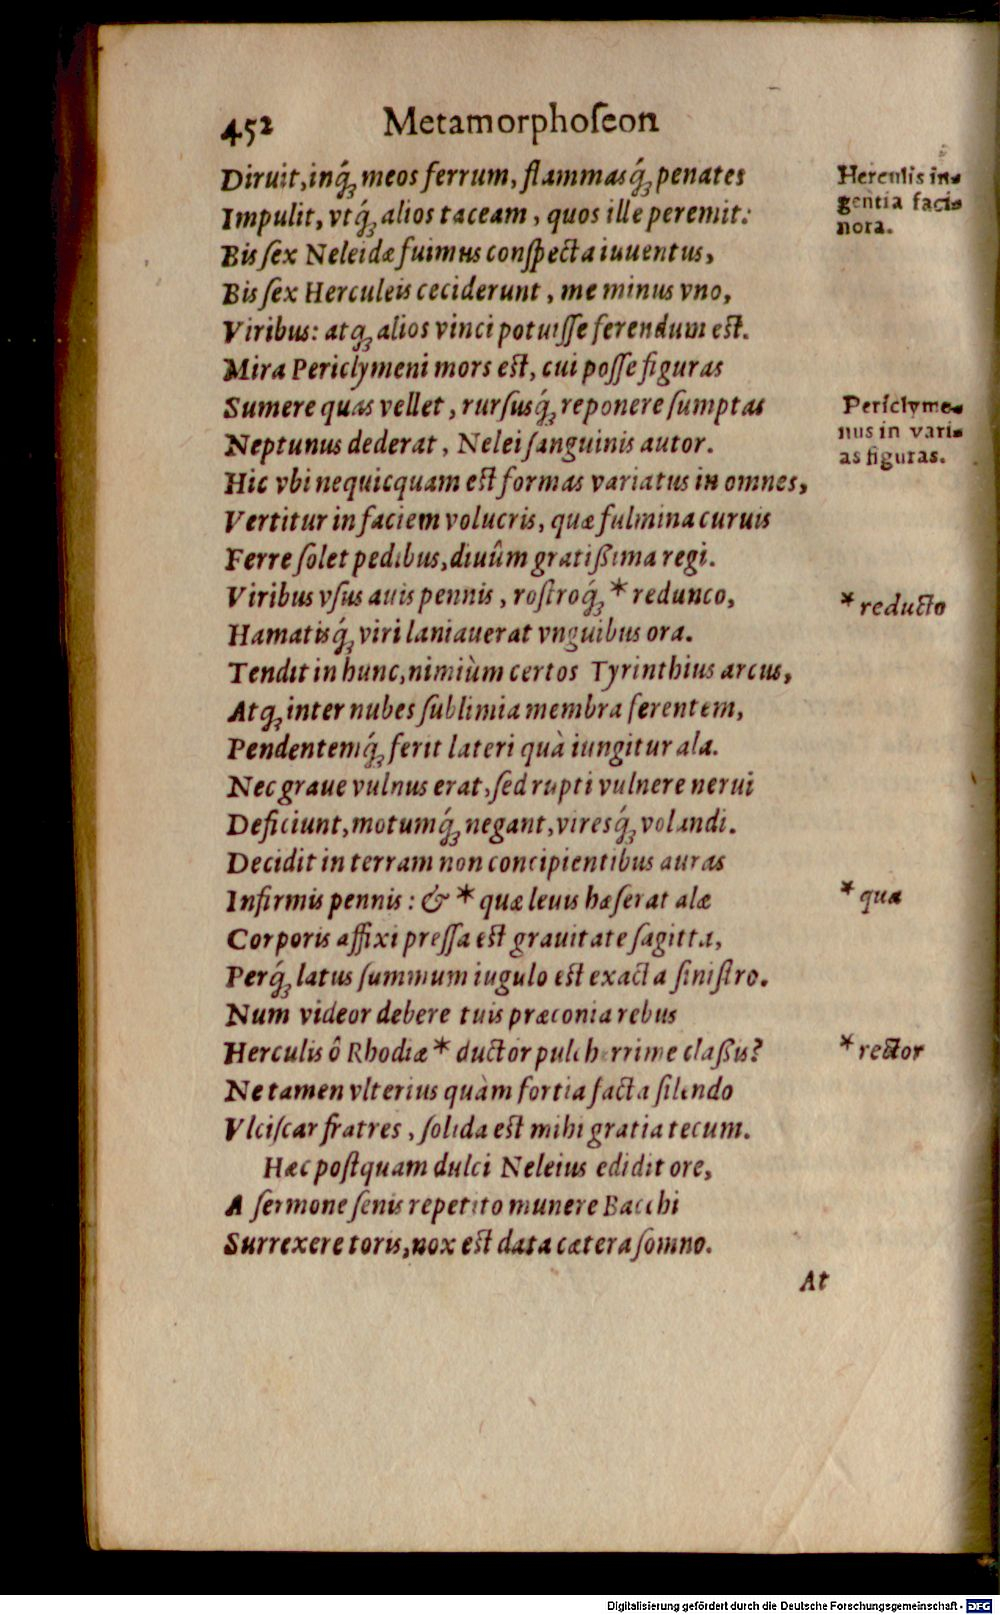 452 Metamorphoſeon
Diruit, inq́ꝫ meos ferrum, flammasq́ꝫ penates
Impulit, vtq́ꝫ alios taceam, quos ille peremit:
Bis ſex Neleidæ fuimus conſpecta iuuentus,
Bis ſex Herculeis ceciderunt, me minus vno,
Viribus: atqꝫ alios vinci potuiſſe ferendum est.
Mira Periclymeni mors est, cui poſſe figuras
Sumere quas vellet, rurſusq́ꝫ reponere ſumptas
Neptunus dederat, Nelei ſanguinis autor.
Hic vbi nequicquam est formas variatus in omnes,
Vertitur in faciem volucris, quæ fulmina curuis
Ferre ſolet pedibus, diuûm gratißima regi.
Viribus vſus auis pennis, roſtroq́ꝫ * redunco,
Hamatisq́ꝫ viri laniauerat vnguibus ora.
Tendit in hunc, nimiùm certos Tyrinthius arcus,
Atqꝫ inter nubes ſublimia membra ferentem,
Pendentemq́ꝫ ferit lateri quà iungitur ala.
Nec graue vulnus erat, ſed rupti vulnere nerui
Deficiunt, motumq́ꝫ negant, viresq́ꝫ volandi.
Decidit in terram non concipientibus auras
Infirmis pennis: & * quæ leuis hæſerat alæ
Corporis affixi preſſa est grauitate ſagitta,
Perq́ꝫ latus ſummum iugulo est exacta ſiniſtro.
Num videor debere tuis præconia rebus
Herculis ô Rhodiæ * ductor pulcherrime claßis?
Ne tamen vlterius quàm fortia facta ſilendo
Vlciſcar fratres, ſolida est mihi gratia tecum.
Hæc poſtquam dulci Neleius edidit ore,
A ſermone ſenis repetito munere Bacchi
Surrexere toris, nox est data cætera ſomno.
At
Herculis in-
gentia faci-
nora.
Periclyme-
nus in vari-
as figuras.
* reducto
* qua
* rector
Digitalisierung gefördert durch die Deutsche Forschungsgemeinschaft - DFG